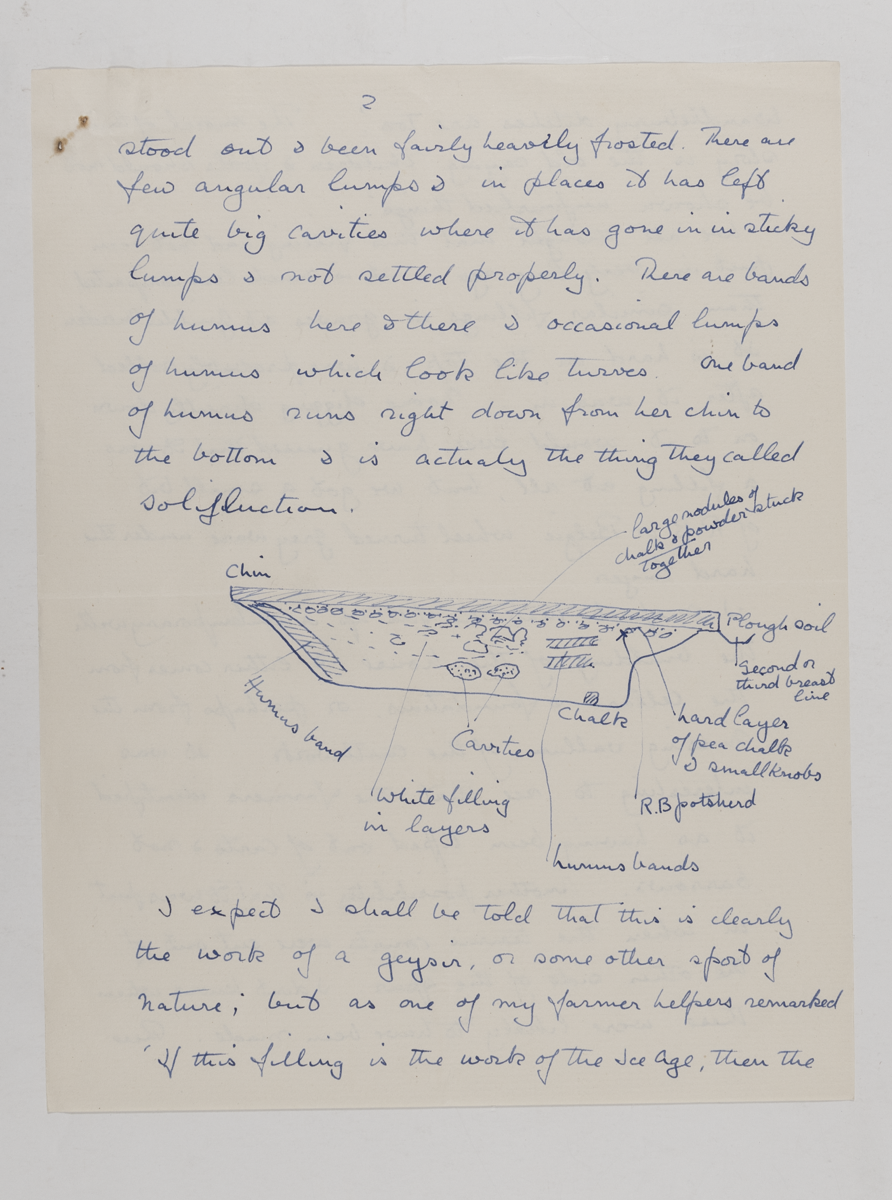 2
stood out & been fairly heavily frosted. There are
few angular lumps & in places it has left
quite big cavities where it has gone in in sticky
lumps & not settled properly. There are bands
of humus here & there & occasional lumps
of humus which look like turves. One band
of humus runs right down from her chin to
the bottom & is actualy the thing they called
solifluction.
large nodules of
chalk & powder stuck
together
Chin
Plough soil
second or
third breast
line
Humus band
Chalk
hard layer
of pea chalk
& small knobs
Cavities
White filling
in layers
R.B potsherd
humus bands
I expect I shall be told that this is clearly
the work of a geysir, or some other sport of
nature; but as one of my farmer helpers remarked
'If this filling is the work of the Ice Age, then the